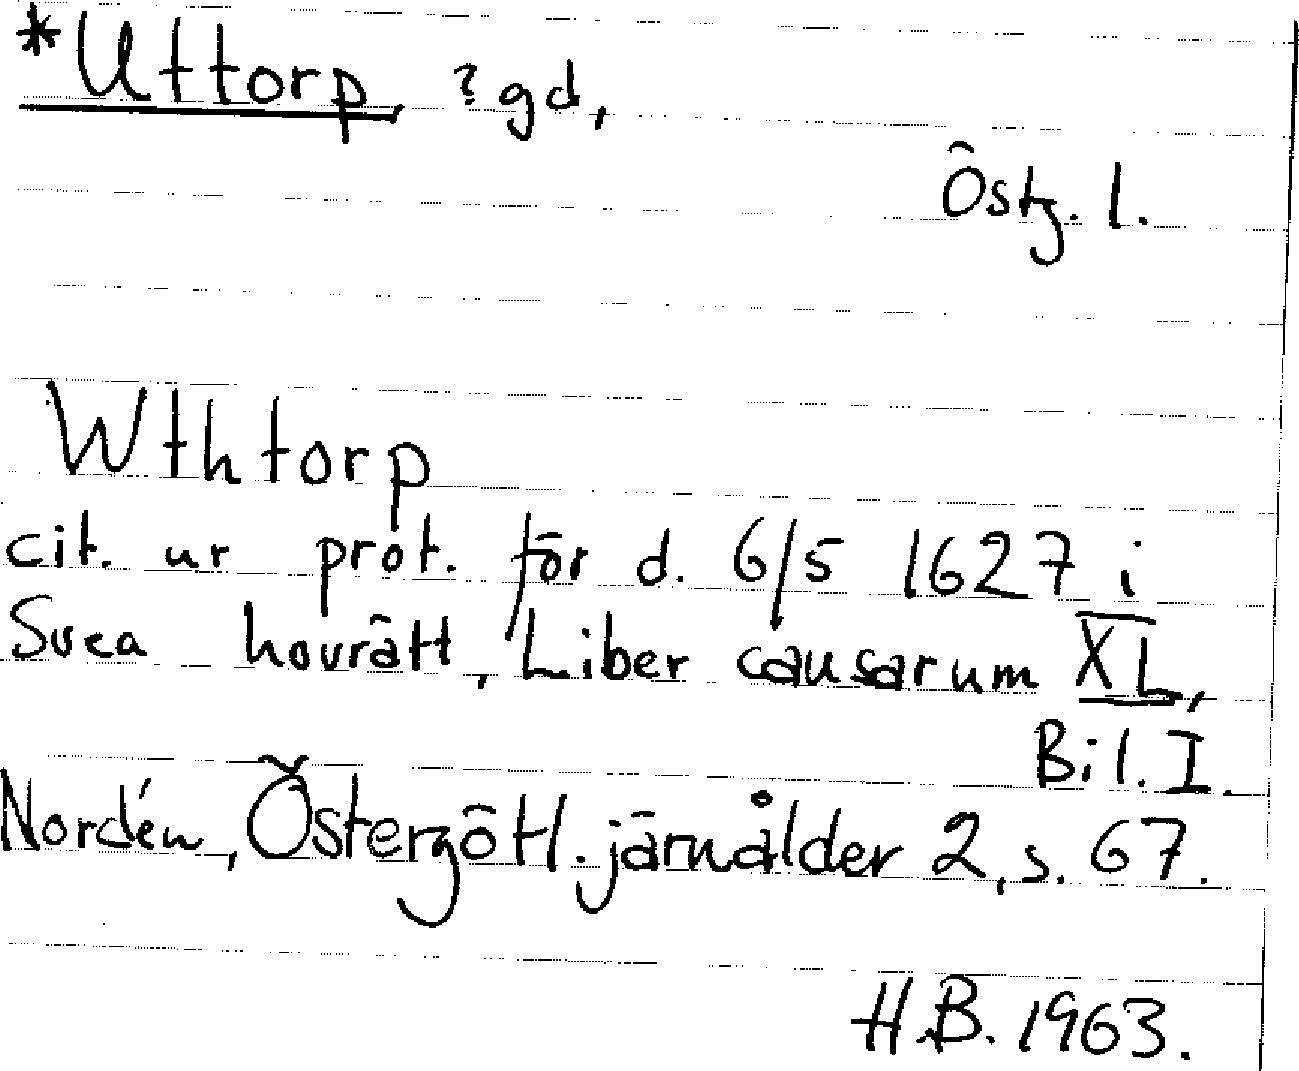 *Uttorp, ?gd,
Östg. l.
Wthtorp
cit. ur prot. för d. 6/5 1627 i
Svea hovrätt, Liber causarum XL,
Bil. I.
Nordén, Östergötl. järnålder 2, s. 67.
H.B. 1963.